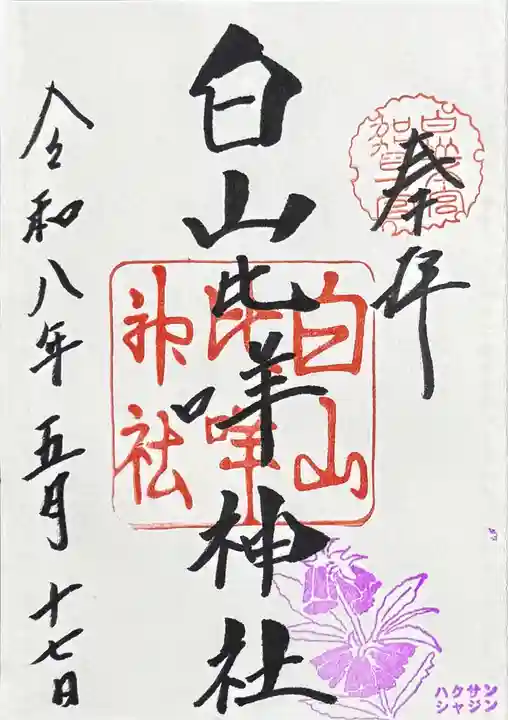 奉拝
白山比咩神社
令和八年五月十七日
白山
比咩
神社
ハクサン
シャジン